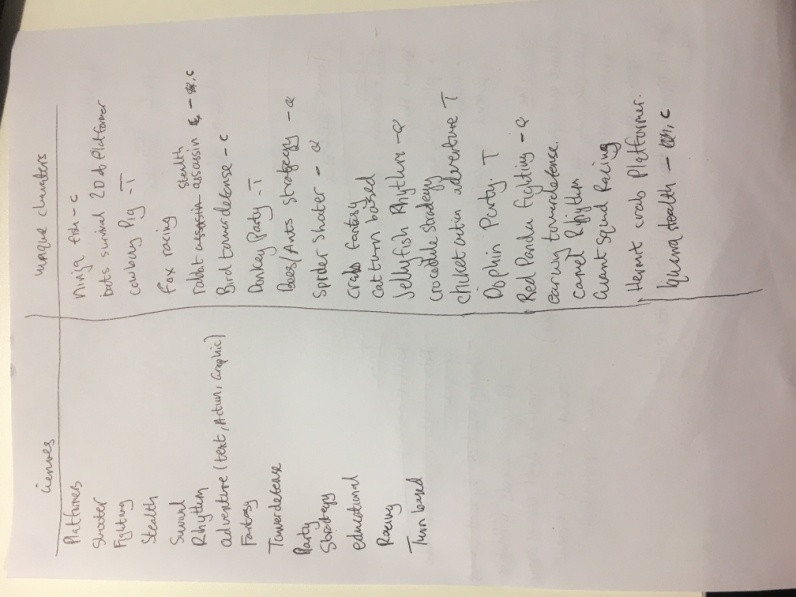 Genres
Platformes
Shooter
Fighting
Stealth
Survival
Rhythm
adventure (text, Action, Graphic)
Fantasy
Tower defense
Party
Strategy
educational
Racing
Turn based
unique characters
ninja fish - C
bats survival 2D Platformer
cowboy Pig - T
Fox racing
rabbit stealth assassin - C
Bird tower defense - C
Donkey Party - T
Bees/Ants strategy - a
Spider Shooter - a
crab fantasy
cat turn based
Jellyfish Rhythm - a
Crocodile strategy
chicken action adventure T
Dolphin Party. T
Red Panda fighting - a
earwig tower defense.
camel Rhythm
Giant Squid Racing
Hermit crab Platformer.
iguana stealth - C